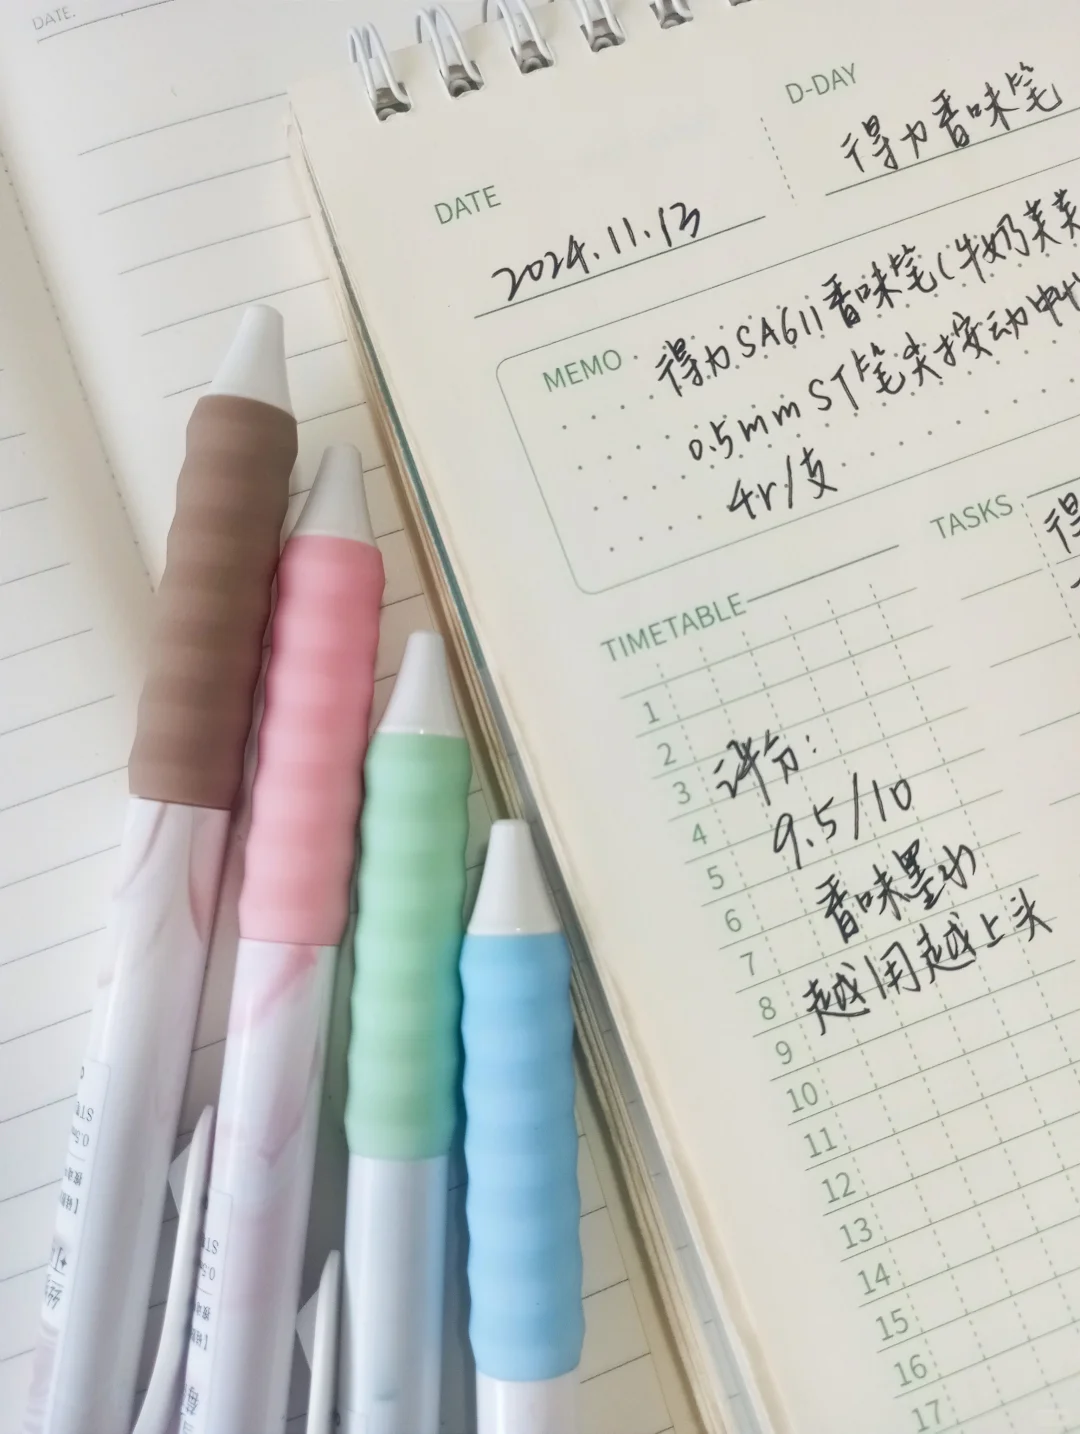 DATE.
D-DAY
得力香味笔
DATE
2024.11.13
MEMO
得力SA611香味笔(牛奶芙
0.5mm ST笔尖按动中
4r/支
TASKS
得
TIMETABLE
1
2
3
评分:
4
9.5/10
5
6
香味墨水
7
8
越用越上头
9
10
11
12
13
14
15
16
17